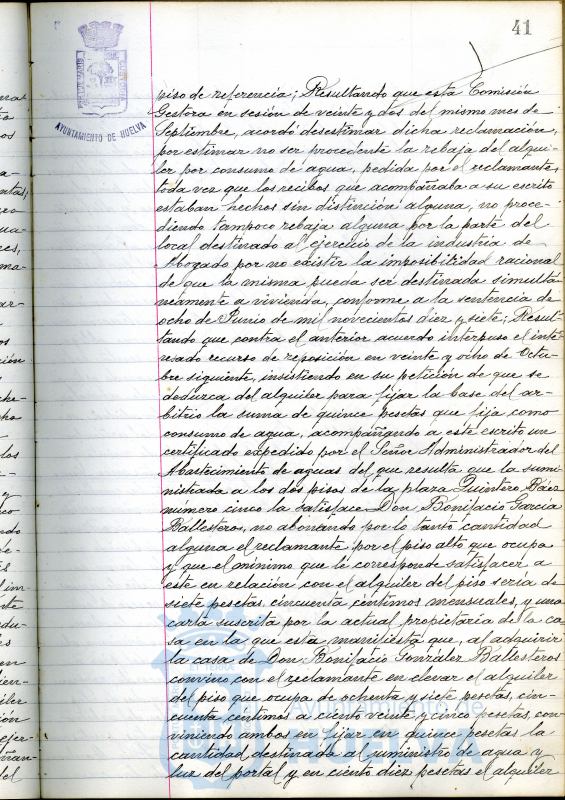 41
AYUNTAMIENTO DE HUELVA
piso de referencia; Resultando que esta Comisión
Gestora en sesión de veinte y dos del mismo mes de
Septiembre, acordó desestimar dicha reclamación,
por estimar no ser procedente la rebaja del alqui-
ler por consumo de agua, pedida por el reclamante,
toda vez que los recibos que acompañaba a su escrito
estaban hechos sin distinción alguna, no proce-
diendo tampoco rebaja alguna por la parte del
local destinado al ejercicio de la industria de
Abogado por no existir la imposibilidad racional
de que la misma pueda ser destinada simultá-
neamente a vivienda, conforme a la sentencia de
ocho de Junio de mil novecientos diez y siete; Resul-
tando que contra el anterior acuerdo interpuso el inte-
resado recurso de reposición en veinte y ocho de Octu-
bre siguiente, insistiendo en su petición de que se
deduzca del alquiler para fijar la base del ar-
bitrio la suma de quince pesetas que fija como
consumo de agua, acompañando a este escrito un
certificado expedido por el Señor Administrador del
Abastecimiento de aguas del que resulta que la sumi-
nistrada a los dos pisos de la plaza Quintero Báez
número cinco la satisface Don Bonifacio García
Ballesteros, no abonando por lo tanto cantidad
alguna el reclamante por el piso alto que ocupa
y que el mínimo que le corresponde satisfacer a
este en relación con el alquiler del piso sería de
siete pesetas cincuenta céntimos mensuales, y una
carta suscrita por la actual propietaria de la ca-
sa en la que esta manifiesta que, al adquirir
la casa de Don Bonifacio González Ballesteros
convino con el reclamante en elevar el alquiler
del piso que ocupa de ochenta y siete pesetas, cin-
cuenta centimos a ciento veinte y cinco pesetas, con-
viniendo ambos en fijar en quince pesetas la
cantidad destinada al suministro de agua y
luz del portal y en ciento diez pesetas el alquiler
Ayuntamiento de
HUELVA